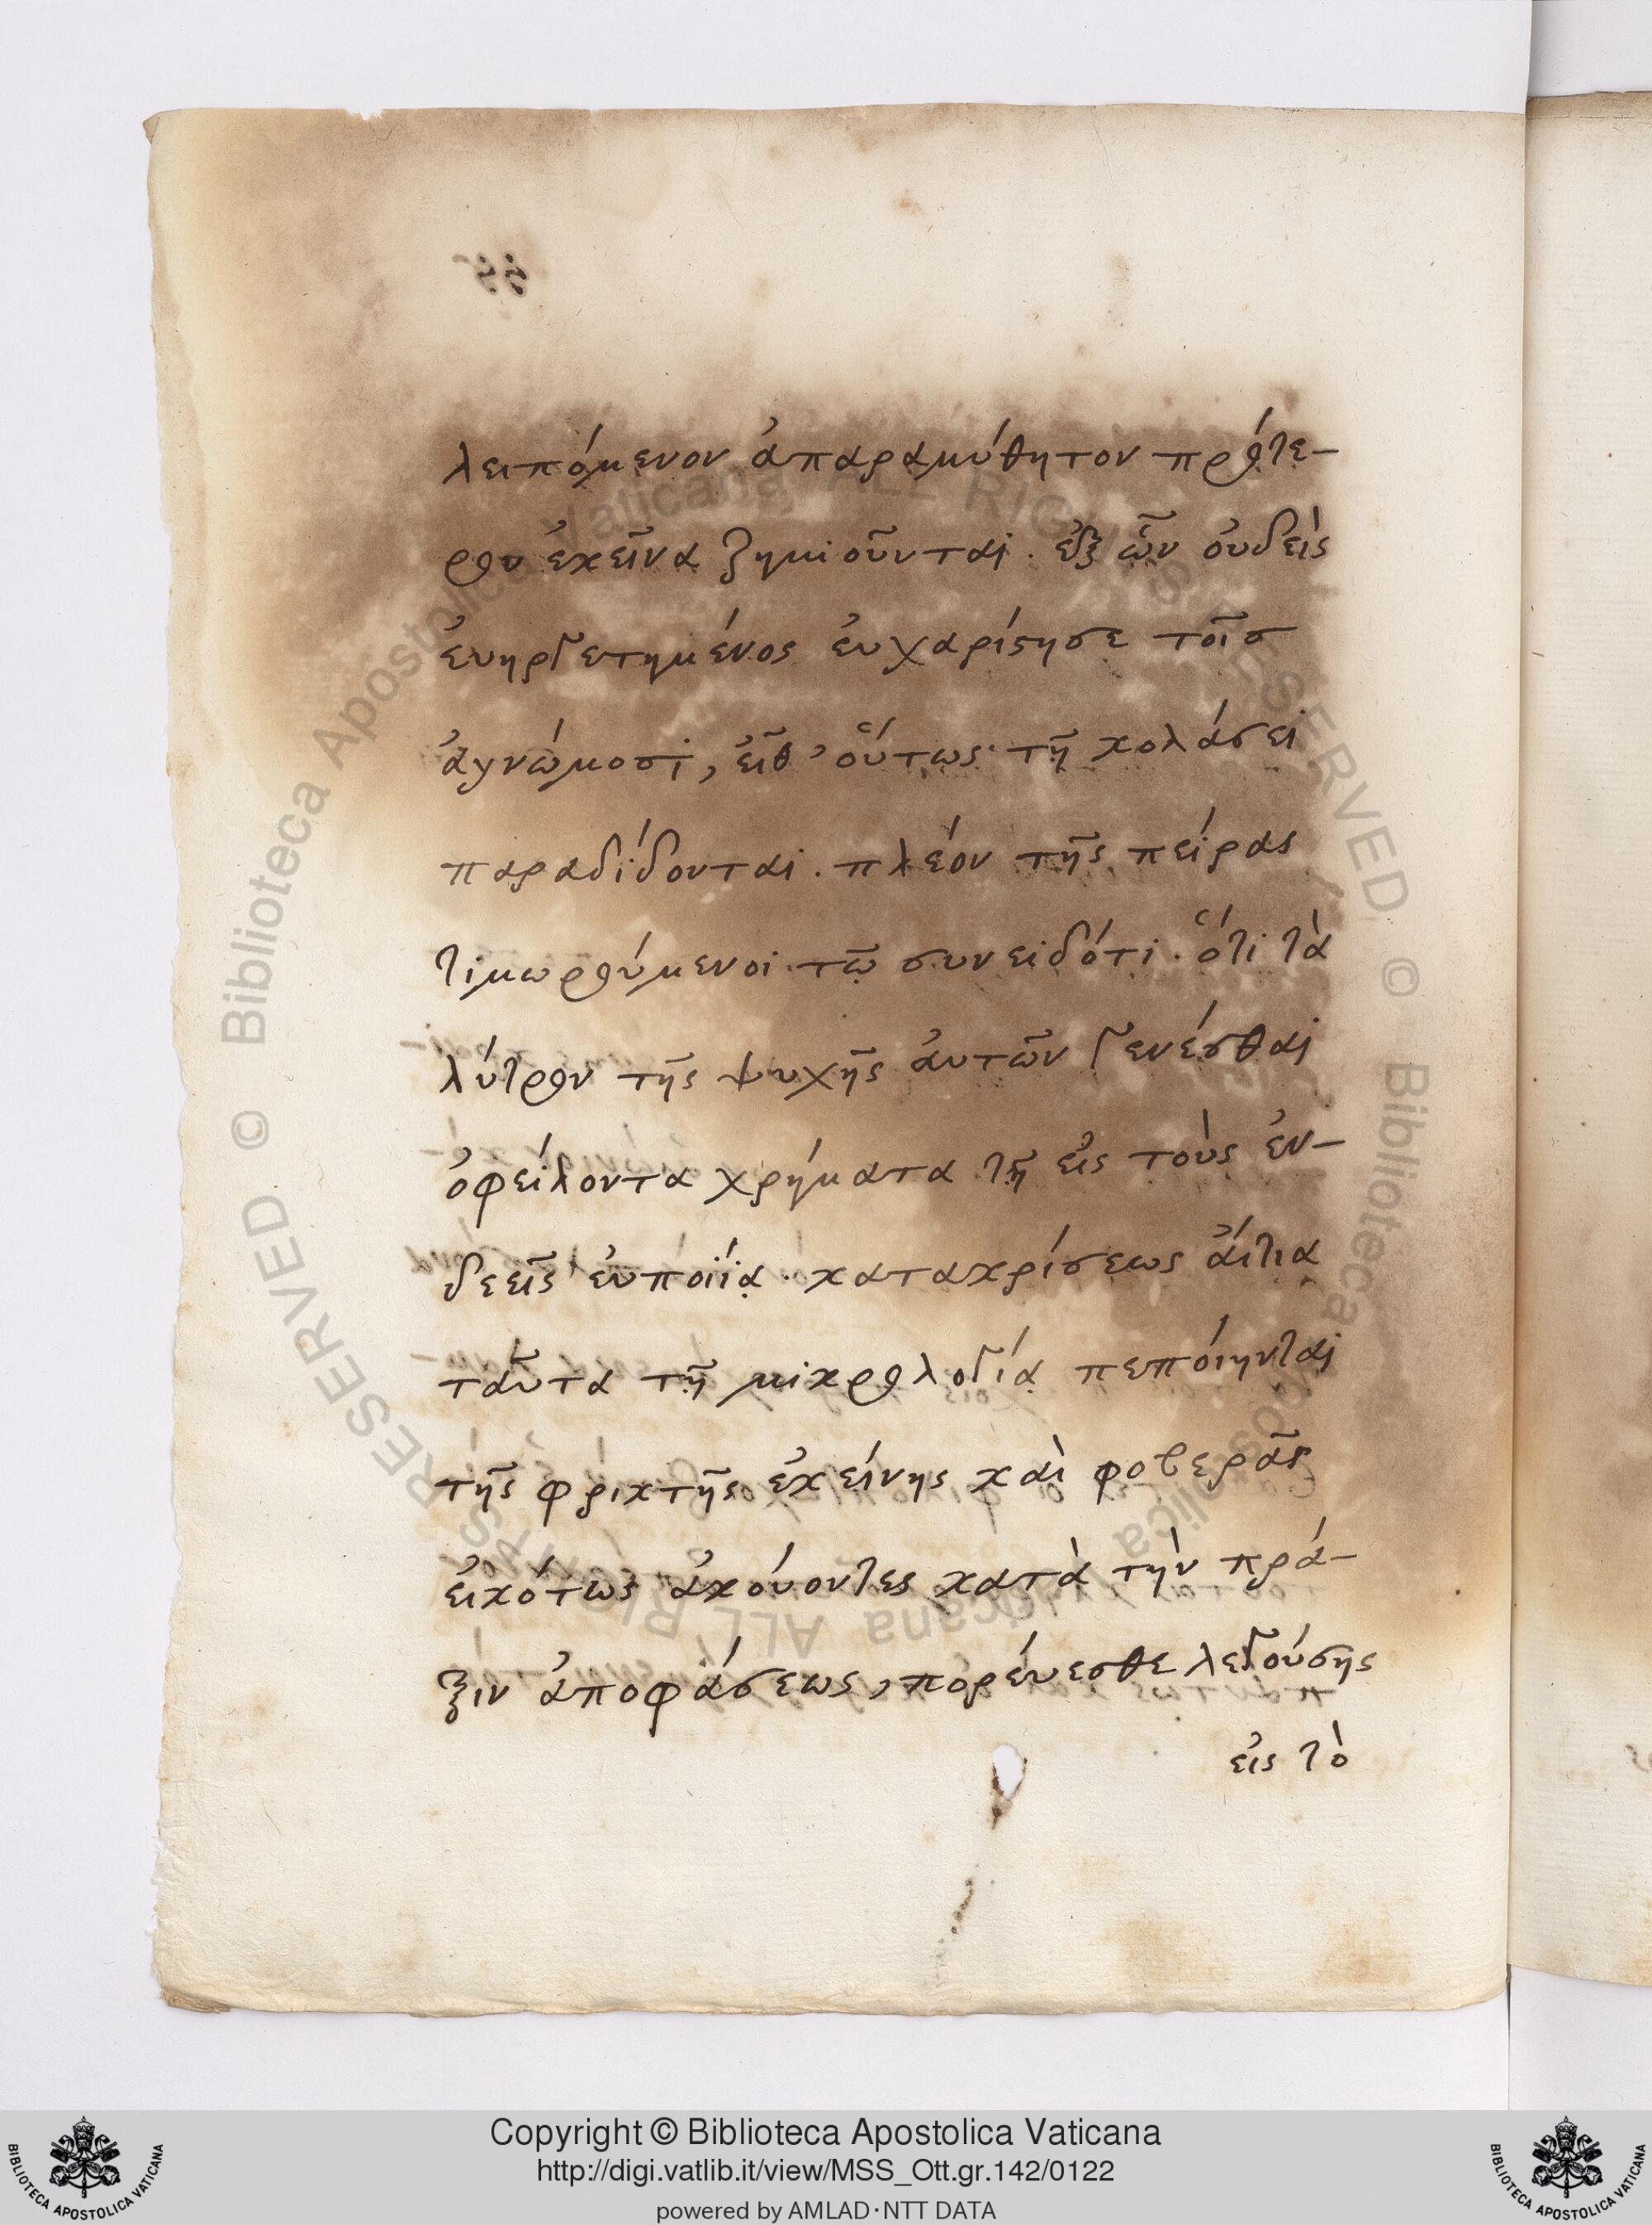 λειπόμενον ἀπαραμύθητον πρότε-
ρον ἐκεῖνα ζημιοῦνται. ἐξ ὧν οὐδεὶς
ἐυηργετημένος ἐυχαρίστησε τοῖσ
ἀγνώμοσι, εἶθ' οὕτως τῇ κολάσει
παραδίδονται. πλέον τῆς πείρας
τιμωρούμενοι τῷ συνειδότι. ὅτι τὰ
λύτρον τῆς ψυχῆς ἀυτῶν γενέσθαι
ὀφείλοντα χρήματα τῇ εἰς τοὺς ἐν-
δεεῖς ἐυποιΐᾳ. κατακρίσεως ἄιτια
ταῦτα τῇ μικρολογίᾳ πεπόιηνται
τῆς φρικτῆς ἐκείνης καὶ φοβερᾶς
εἰκότως ἀκούοντες κατὰ τὴν πρά-
ξιν ἀποφάσεως, πορέυεσθε λεγούσης
εἰς τὸ
Copyright © Biblioteca Apostolica Vaticana
http://digi.vatlib.it/view/MSS_Ott.gr.142/0122
powered by AMLAD·NTT DATA
BIBLIOTECA APOSTOLICA VATICANA
BIBLIOTECA APOSTOLICA VATICANA
© Biblioteca Apostolica Vaticana ALL RIGHTS RESERVED
© Biblioteca Apostolica Vaticana ALL RIGHTS RESERVED